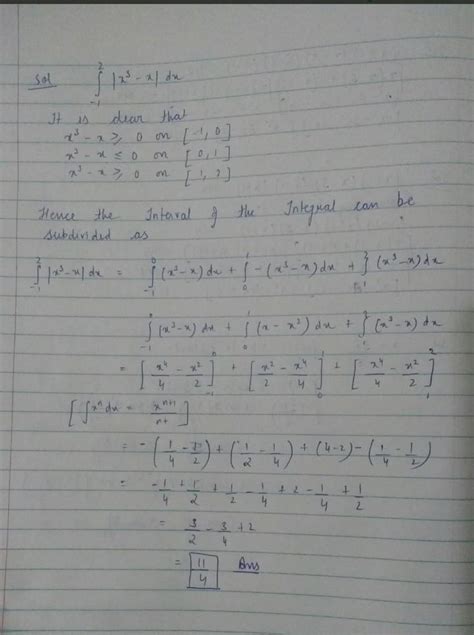 Sol ∫_{-1}^{2} |x³ - x| dx
It is clear that
x³ - x ≥ 0 on [-1, 0]
x³ - x ≤ 0 on [0, 1]
x³ - x ≥ 0 on [1, 2]
Hence the Interval of the Integral can be
subdivided as
∫_{-1}^{2} |x³ - x| dx = ∫_{-1}^{0} (x³ - x) dx + ∫_{0}^{1} -(x³ - x) dx + ∫_{1}^{2} (x³ - x) dx
∫_{-1}^{0} (x³ - x) dx + ∫_{0}^{1} (x - x³) dx + ∫_{1}^{2} (x³ - x) dx
= [x⁴/4 - x²/2]_{-1}^{0} + [x²/2 - x⁴/4]_{0}^{1} + [x⁴/4 - x²/2]_{1}^{2}
[∫xⁿ dx = xⁿ⁺¹/n+1]
= -(1/4 - 1/2) + (1/2 - 1/4) + (4-2) - (1/4 - 1/2)
= -1/4 + 1/2 + 1/2 - 1/4 + 2 - 1/4 + 1/2
= 3/2 - 3/4 + 2
= 11/4 Ans